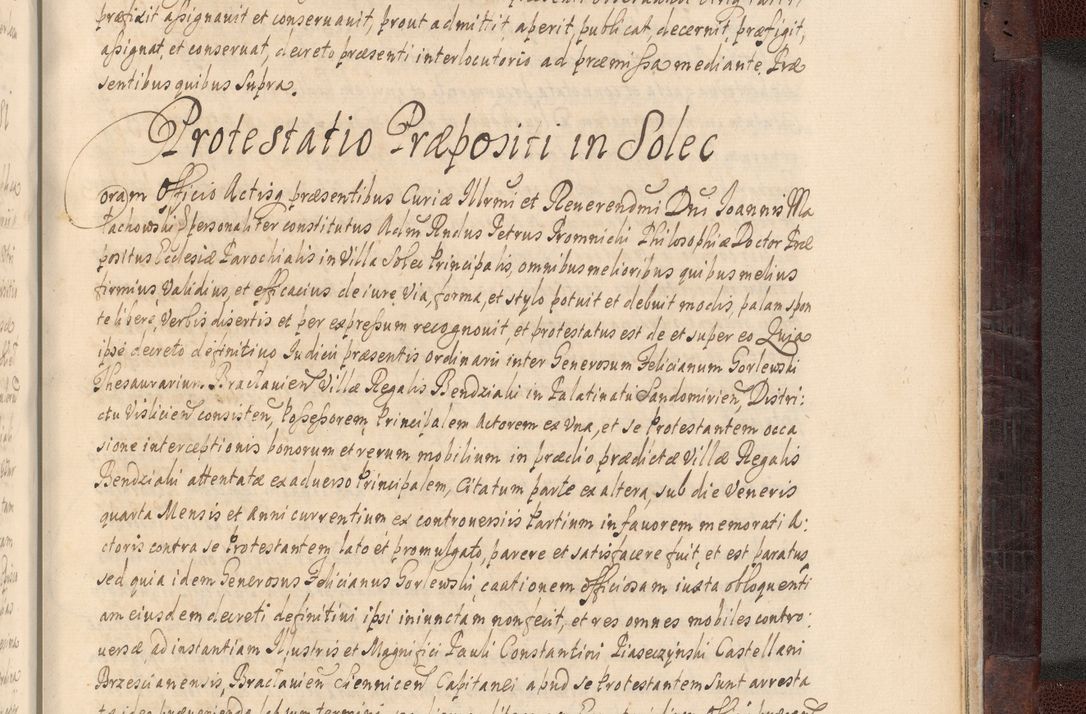 præfixit assignauit et conseruauit, prout admittit, aperit, publicat, decernit, præfigit,
assignat, et conseruat, decreto præsenti interlocutorio ad præmissa mediante. Præ
sentibus quibus supra.
Protestatio Præpositi in Solec
Coram Officio Actisq præsentibus Curiæ Illrmi et Reuerendmi Dni Joannis Ma
łachowski personaliter constitutus Adm Rndus Petrus Promnicki Philosophiæ Doctor Præ
positus Ecclesiæ Parochialis in Villa Solec Principalis, omnibus melioribus quibus melius
firmius validius, et efficacius de iure, via, forma, et stylo potuit et debuit modis, palam spon
te libere, verbis disertis et per expressum recognouit, et protestatus est de et super eo Quia
ipse decreto definitiuo Iudicii præsentis ordinarii inter Generosum Felicianum Gorlewski
Thesaurarium Braclauien Villæ Regalis Bendziaki in Palatinatu Sandomirien, Distri:
ctu Vislicien consisten, Possessorem Principalem Actorem ex vna, et se Protestantem occa
sione interceptionis bonorum et rerum mobilium in prædio prædictæ Villæ Regalis
Bendziaki attentatæ ex aduerso Principalem, Citatum parte ex altera, sub die Veneris
quarta Mensis et Anni currentium ex controuersiis Partium in fauorem memorati A:
ctoris contra se Protestantem lato et promulgato, parere et satisfacere fuit, et est paratus
sed quia idem Generosus Felicianus Gorlewski cautionem officiosam iuxta obloquenti
am eiusdem decreti definitiui ipsi iniunctam non fecit, et res omnes mobiles contro:
uersæ, ad instantiam Illustris et Magnifici Pauli Constantini Piaseczynski Castellani
Brzescianensis, Braclauien Ciennicen Capitanei apud se Protestantem sunt arresta